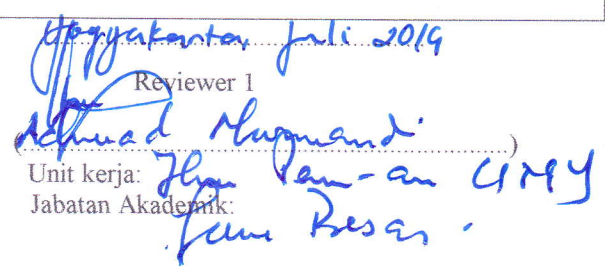 Yogyakarta, Juli 2019
Reviewer 1
(Achmad Nurmandi)
Unit kerja: Ilmu Pem-an UMY
Jabatan Akademik:
Guru Besar.